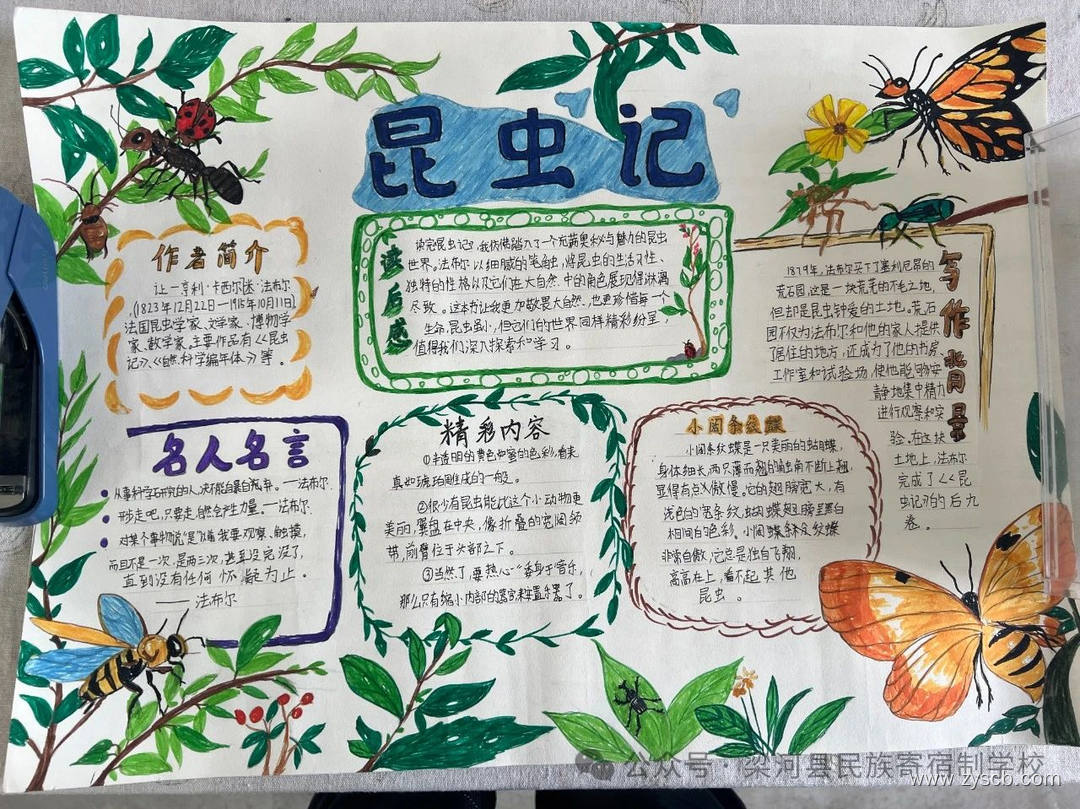 昆虫记
作者简介
让-亨利·卡西尔·法布尔
(1823年12月22日-1915年10月11日),
法国昆虫学家、文学家、博物学
家、数学家,主要作品有《昆虫
记》、《自然科学编年体》等。
读后感
读完昆虫记,我仿佛踏入了一个充满奥秘与魅力的昆虫
世界。法布尔以细腻的笔触,将昆虫的生活习性、
独特的性格以及它们在大自然中的角色展现得淋漓
尽致。这本书让我更加敬畏大自然,也更珍惜每一个
生命,昆虫虽小,但它们的世界同样精彩纷呈,
值得我们深入探索和学习。
写作背景
1879年,法布尔买下了塞利尼昂的
荒石园,这是一块荒芜的不毛之地,
但却是昆虫钟爱的土地。荒石
园不仅为法布尔和他的家人提供
了居住的地方,还成为了他的书房、
工作室和试验场,使他能够安
静地集中精力
进行观察和实
验,在这块
土地上,法布尔
完成了《昆
虫记》的后九
卷。
名人名言
从事科学研究的人,决不能自暴自弃。—法布尔
形步走吧,只要走,自然会产生力量。—法布尔
对某个事物说"是"以前,我要观察、触摸,
而且不是一次,是两三次,甚至没完没了,
直到没有任何怀疑为止。
——法布尔
精彩内容
①半透明的黄色如蜜的色彩,看来
真如琥珀雕成的一般。
②很少有昆虫能比这个小动物更
美丽,翼盘在中央,像折叠的宽阔领
带,前臂位于头部之下。
③当然了,要热心"委身于音乐,
那么只有缩小内部的器官,来安置乐器了。
小阔条纹蝶
小阔条纹蝶是一只美丽的蛄蝴蝶,
身体细长,两只薄而翘的触角不断上翘,
显得有点儿傲慢。它的翅膀宽大,有
浅色的宽条纹,蝴蝶翅膀呈黑白
相间的色彩。小阔蝶条纹蝶
非常自傲,它总是独自飞翔,
高高在上,看不起其他
昆虫。
公众号·梁河县民族寄宿制学校
www.zyscb.com